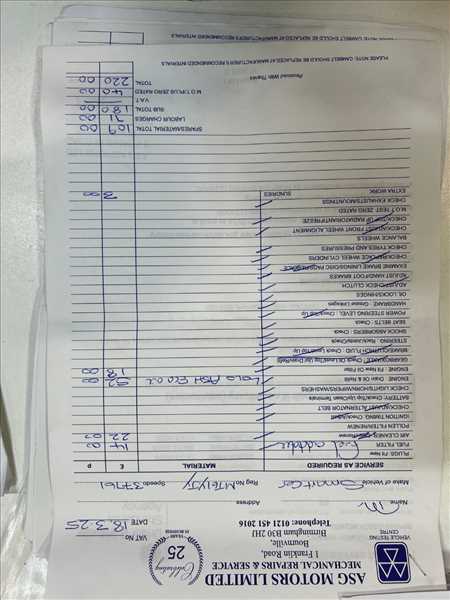 ASG MOTORS LIMITED
MECHANICAL REPAIRS & SERVICE
1 Franklin Road,
Bournville,
Birmingham B30 2HJ
Telephone: 0121 451 2016
VEHICLE TESTING CENTRE
Celebrating 25 YEARS IN BUSINESS
VAT No
DATE 18.3.25
Name
Address
Make of Vehicle Smart Car Reg No Speedo 37761
SERVICE AS REQUIRED MATERIAL £ P
PLUGS: Fit New
FUEL FILTER Fuel additive 14 00
AIR CLEANER 22 00
POLLEN FILTER/RENEW
IGNITION TIMING: Check/Adjust
CHECK/ADJUST ALTERNATOR BELT
BATTERY: Check/Top Up/Clean Terminals
CHECK/LIGHTS/HORN/WIPERS/WASHERS
ENGINE: Drain Oil & Refill Low ASH Eco Oil 52 00
ENGINE: Fit New Oil Filter 18 00
GEARBOX/AXLE: Check Oil Level/Top Up/Drain/Refill
BRAKE/CLUTCH - FLUID - Check Level/Top Up
STEERING - Rack/Joints/Check
SHOCK ABSORBERS - Check
SEAT BELTS - Check
POWER STEERING LEVEL - Check/Top Up
HANDBRAKE - Grease Linkages
OIL LOCKS/HINGES
ADJUST/CHECK CLUTCH
ADJUST HAND/FOOT BRAKES
EXAMINE BRAKE LININGS/DRG PADS
CHECK/FOR WHEEL CYLINDERS
CHECK TYRES AND PRESSURES
BALANCE WHEELS
CHECK/ADJUST FRONT WHEEL ALIGNMENT
CHECK/TOP UP RADIATOR/ANTIFREEZE
M.O.T TEST - ZERO RATED
CHECK EXHAUST/MOUNTINGS
EXTRA WORK SUNDRIES 3 00
SPARES/MATERIAL TOTAL 109 00
LABOUR CHARGES 71 00
SUB TOTAL 180 00
V.A.T.
M.O.T/FUEL ZERO RATED 40 00
TOTAL 220 00
Received With Thanks
PLEASE NOTE: CAMBELT SHOULD BE REPLACED AT MANUFACTURER'S RECOMMENDED INTERVALS